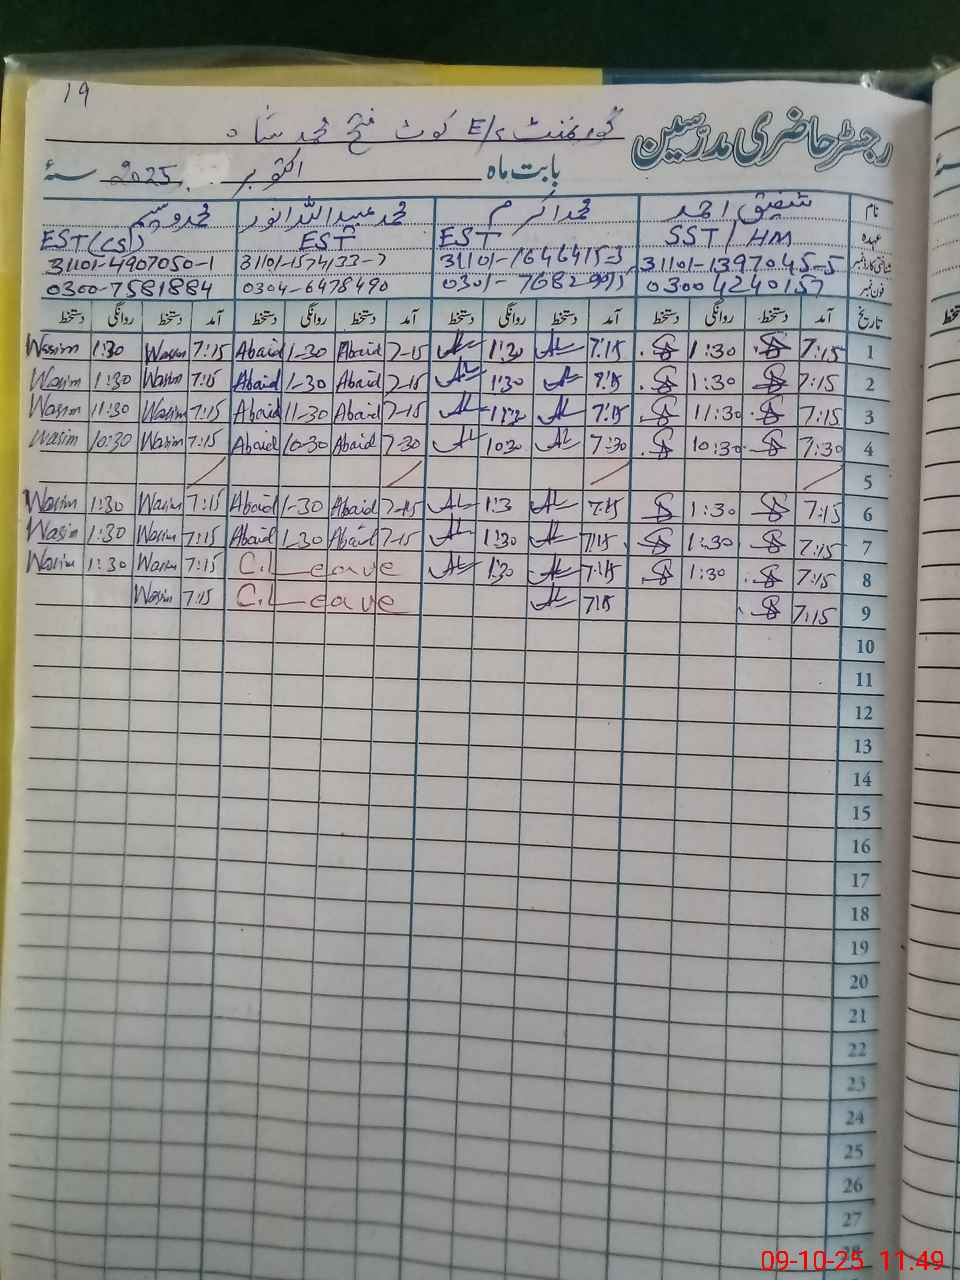 19
رجسٹر حاضری مدرسین گورنمنٹ E/S کوٹ فتح محمد شاہ
بابت ماہ اکتوبر 2025ء سنۂ
نام شفیق احمد محمد اکرم محمد عبید اللہ انور محمد وسیم
عہدہ SST/HM EST EST EST(CS)
شناختی کارڈ نمبر 31101-1397045-5 31101-1646415-3 31101-1574133-7 31101-4907050-1
فون نمبر 0300 4240157 0301-7682995 0304-6478490 0300-7581884
تاریخ آمد دستخط روانگی دستخط آمد دستخط روانگی دستخط آمد دستخط روانگی دستخط آمد دستخط روانگی دستخط
1 7:15 1:30 7:15 1:30 7-15 Abaid 1-30 Abaid 7:15 Wasim 1:30 Wasim
2 7:15 1:30 7:15 1:30 7-15 Abaid 1-30 Abaid 7:15 Wasim 1:30 Wasim
3 7:15 11:30 7:15 11:30 7-15 Abaid 11-30 Abaid 7:15 Wasim 11:30 Wasim
4 7:30 10:30 7:30 10:30 7-30 Abaid 10-30 Abaid 7:15 Wasim 10:30 Wasim
5
6 7:15 1:30 7:15 1:3 7-15 Abaid 1-30 Abaid 7:15 Wasim 1:30 Wasim
7 7:15 1:30 7:15 1:30 7-15 Abaid 1-30 Abaid 7:15 Wasim 1:30 Wasim
8 7:15 1:30 7:15 1:30 C.Leave 7:15 Wasim 1:30 Wasim
9 7:15 7:15 C.Leave 7:15 Wasim
10
11
12
13
14
15
16
17
18
19
20
21
22
23
24
25
26
27
28
09-10-25 11.49